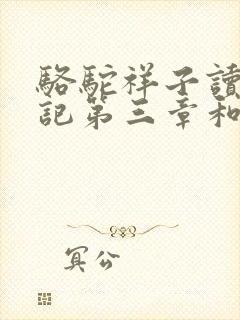 駱駝祥子讀
記第三章和
冥公